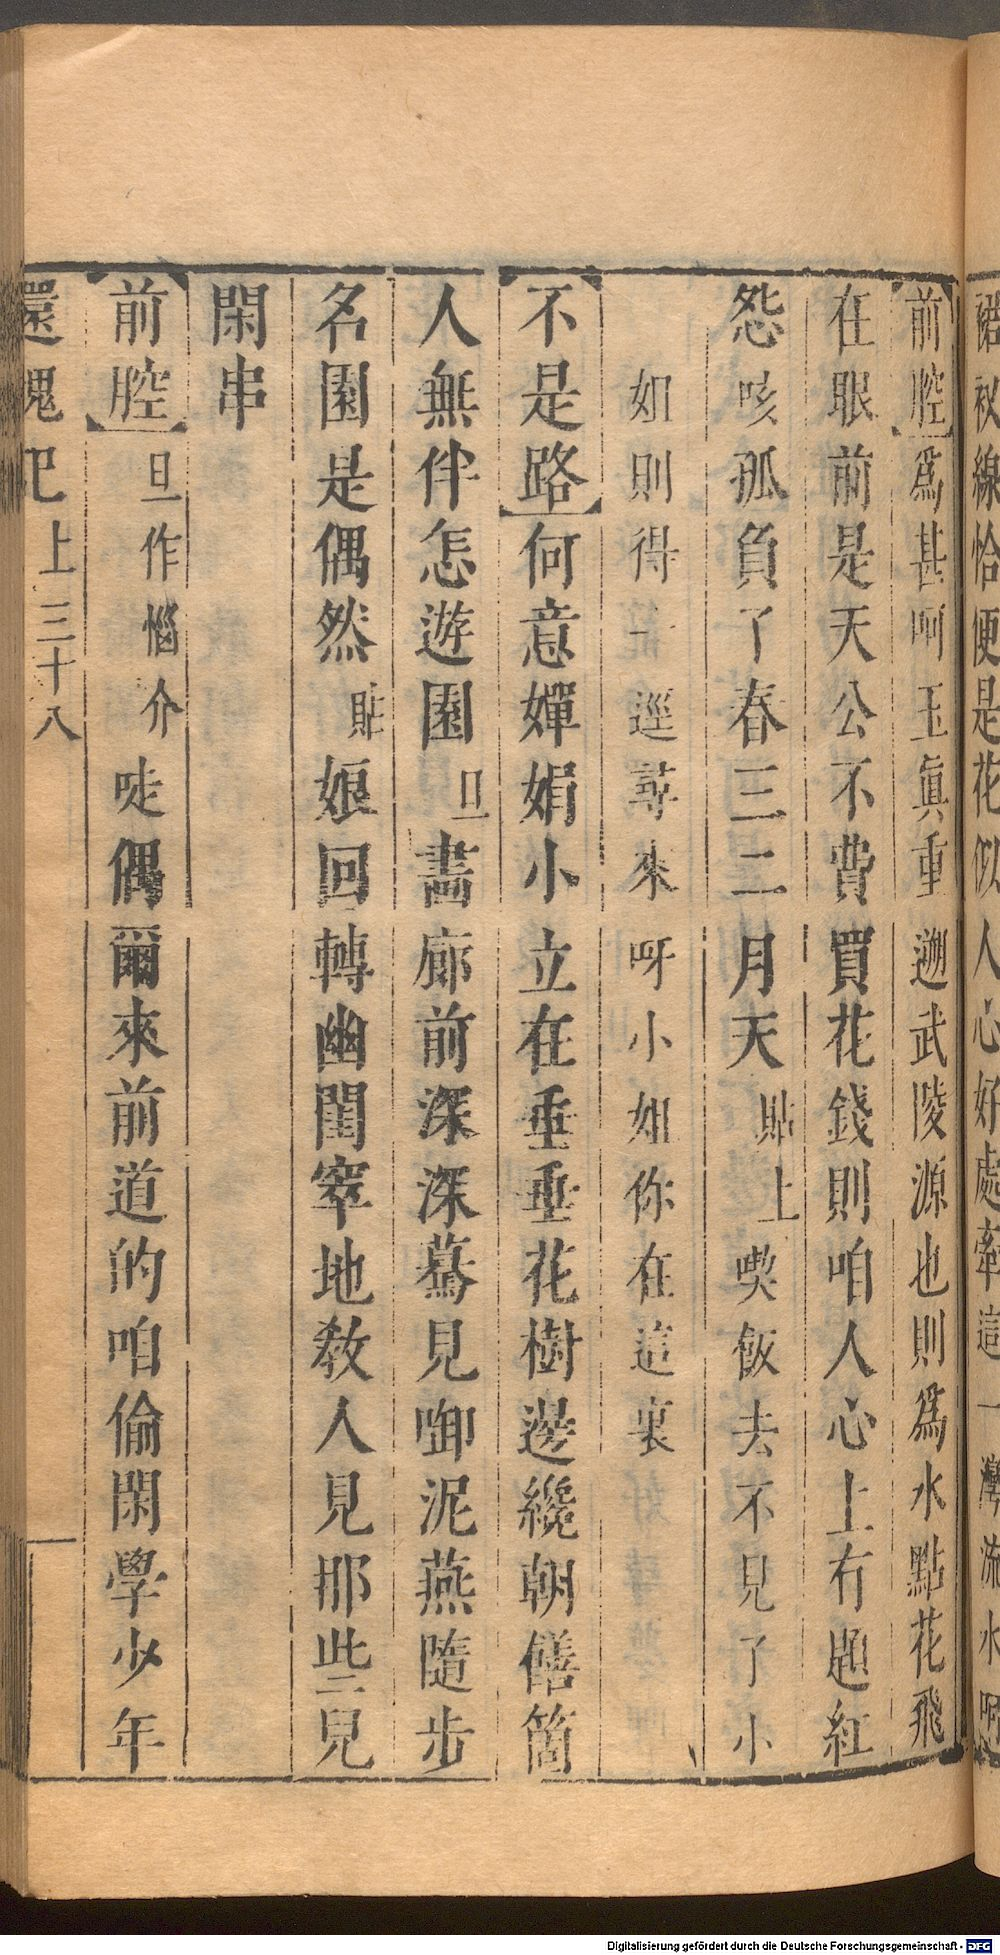 裙衩線恰便是花似人心好處牽這一灣流水呵
前腔爲甚呵玉眞重遡武陵源也則爲水點花飛
在眼前是天公不費買花錢則咱人心上有題紅
怨咳孤負了春三二月天貼上喫飯去不見了小
姐則得一逕尋來呀小姐你在這裏
不是路何意嬋娟小立在垂垂花樹邊纔朝饍箇
人無伴怎遊園旦畵廊前深深驀見啣泥燕隨步
名園是偶然貼娘回轉幽閨窣地敎人見那些兒
閑串
前腔旦作惱介唗偶爾來前道的咱偷閑學少年
還魂記上三十八
Digitalisierung gefördert durch die Deutsche Forschungsgemeinschaft - DFG